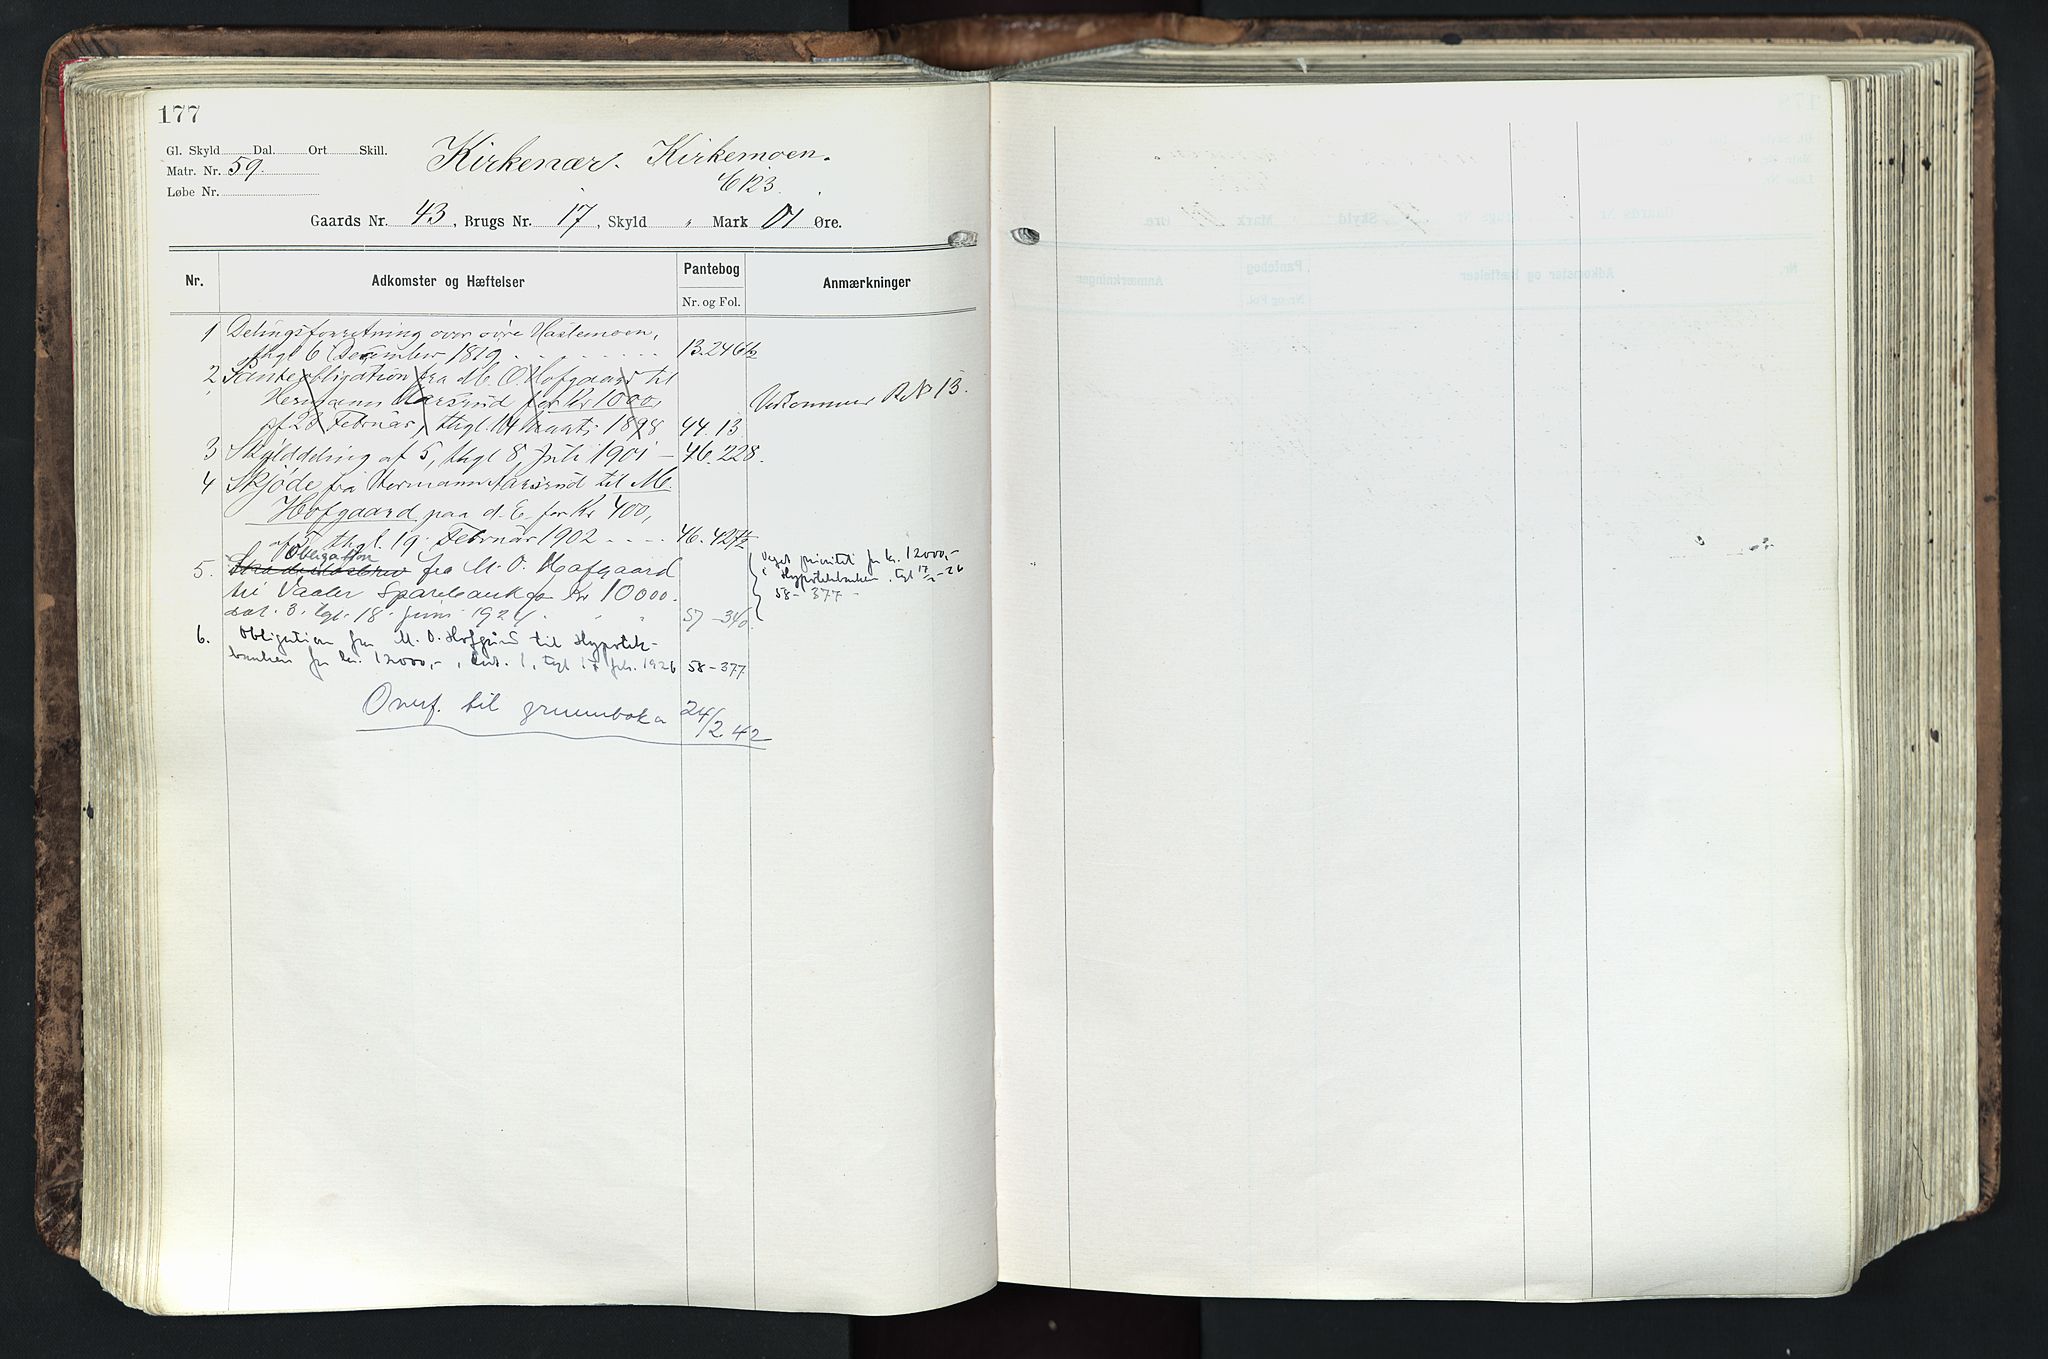 177
Gl. Skyld Dal. Ort Skill.
Matr. Nr. 59.
Løbe Nr.
Kirkenær. Kirkemoen.
Gaards Nr. 43, Brugs Nr. 17, Skyld " Mark 01 Øre.
Nr. Adkomster og Hæftelser Pantebog Nr. og Fol. Anmærkninger
1 Delingsforretning over søre Hastemoen,
thgl 6 December 1819 13.246
2 Panteobligation fra M. O. Hofgaard til
Hermann Aarsrud for Kr 1000, Vedkommer B. № 13.
af 23 Februar, thgl. 14 Marts 1898 44.13
3 Skylddeling af 5, thgl 8 Juli 1901 – 46.228.
4 Skjøde fra Hermann Aarsrud til M.
Hofgaard paa d. E. for Kr 400,
af 5, thgl. 19. Februar 1902 46.427
Obligation
5. fra M. O. Hofgaard
til Vaaler Sparebank for Kr 10000.
dat. 3. tgl. 18. juni 1924. 57–340.
Veget prioritet for kr. 12000,-
t. Hypotekbanken, tgl 17/2-26
58-377-
6. Obligation fra M. O. Hofgaard til Hypotek-
banken for kr. 12000,-, dat. 1, tgl 17 feb. 1926 58–377
Overf. til grunnboka 24/2.42